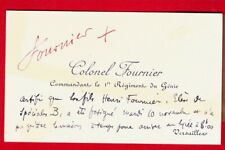 Fournier
Colonel Fournier
Commandant le 1er Régiment du Génie
certifie que son fils Henri Fournier, Elève de
Spéciales B, a été fatigué mardi 10 novembre et n'a
pu arriver au lycée à 8h00
Versailles